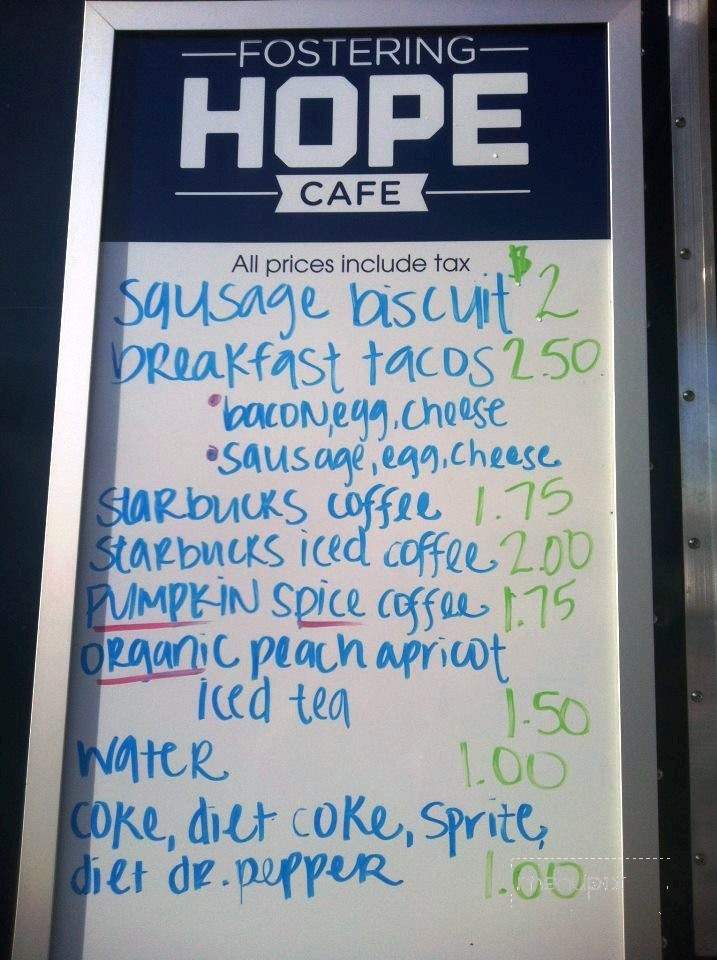 FOSTERING
HOPE
CAFE
All prices include tax
sausage biscuit $2
breakfast tacos 2.50
• bacon, egg, cheese
• sausage, egg, cheese
Starbucks coffee 1.75
Starbucks iced coffee 2.00
PUMPKIN SPICE coffee 1.75
organic peach apricot
iced tea 1.50
water 1.00
coke, diet coke, sprite,
diet dr. pepper 1.00
menupix